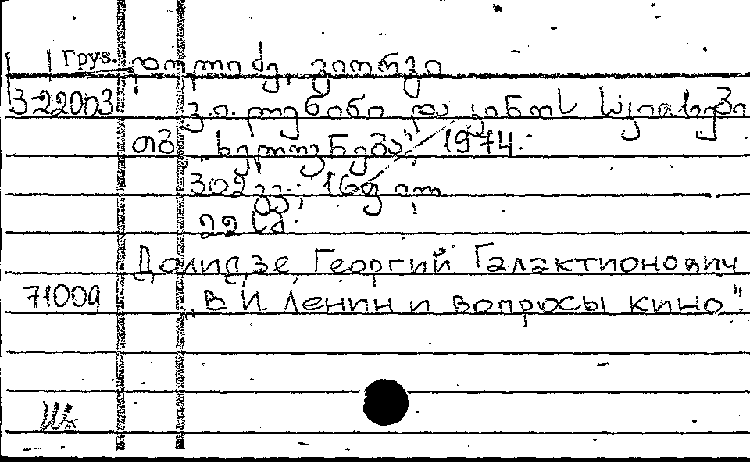 Груз. დოლიძე, გიორგი
3-22003 ვ. ი. ლენინი და კინოს საკითხები
თბ., "ხელოვნება", 1974.-
302 გვ; 16
22 სმ.
Долидзе, Георгий Галактионович
71009 "В И Ленин и вопросы кино"